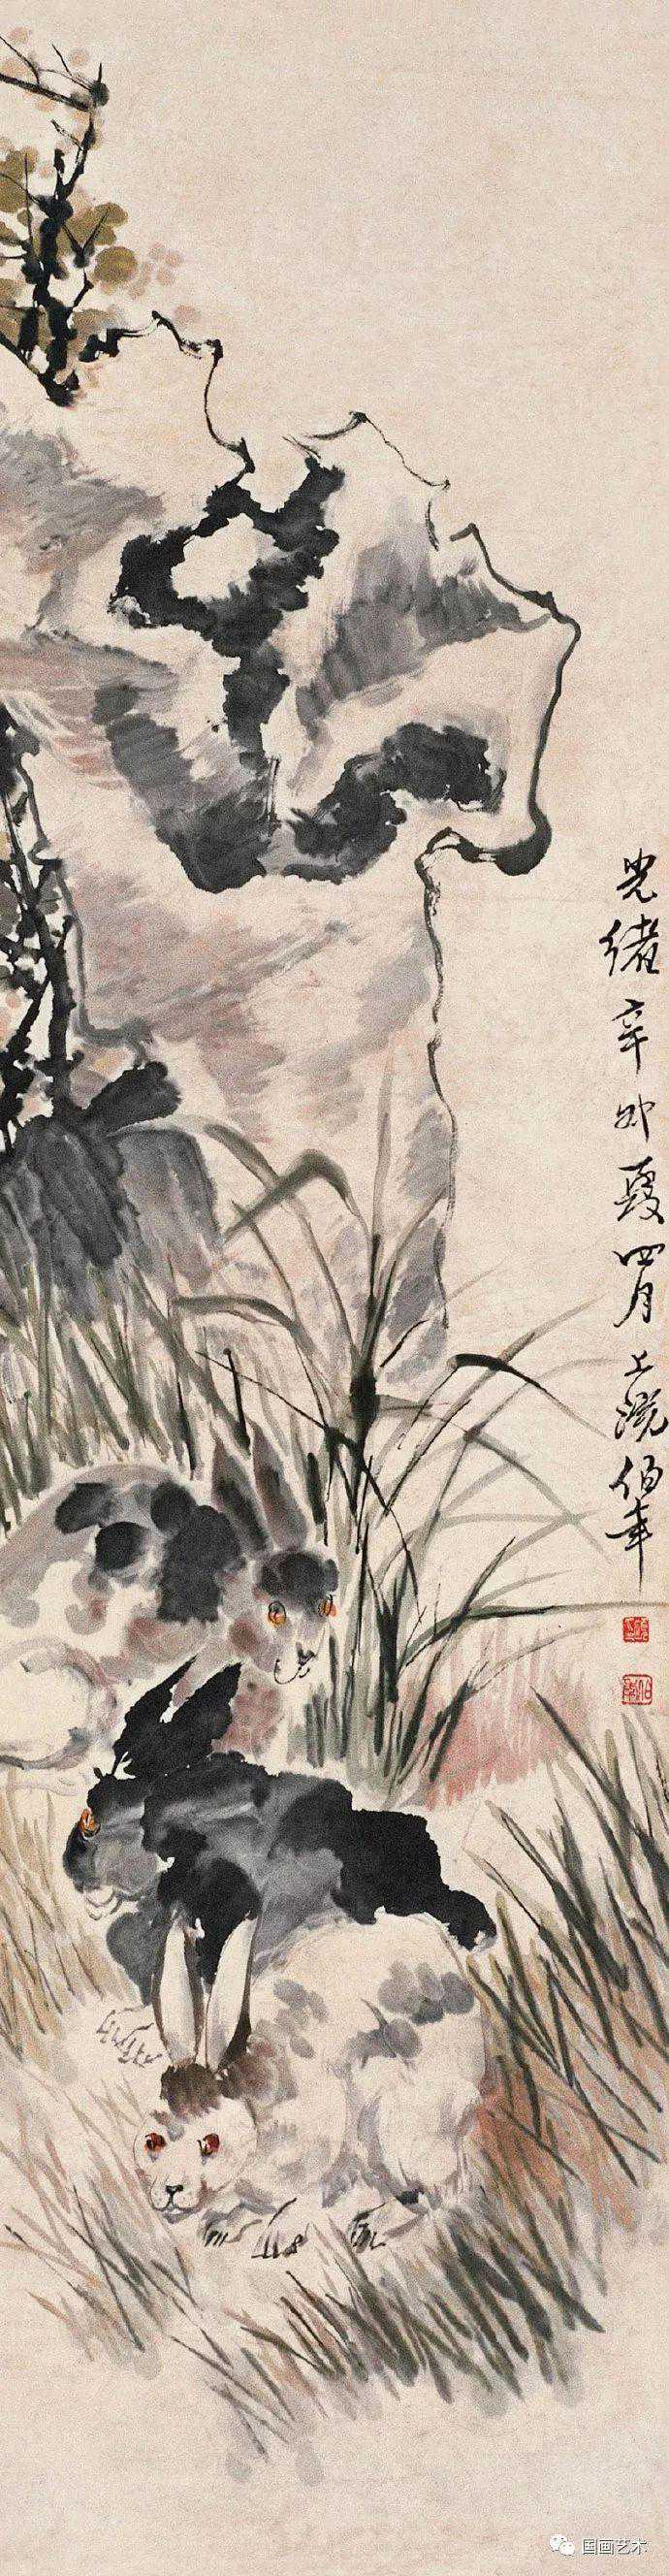 光绪辛卯夏四月上浣伯年
国画艺术